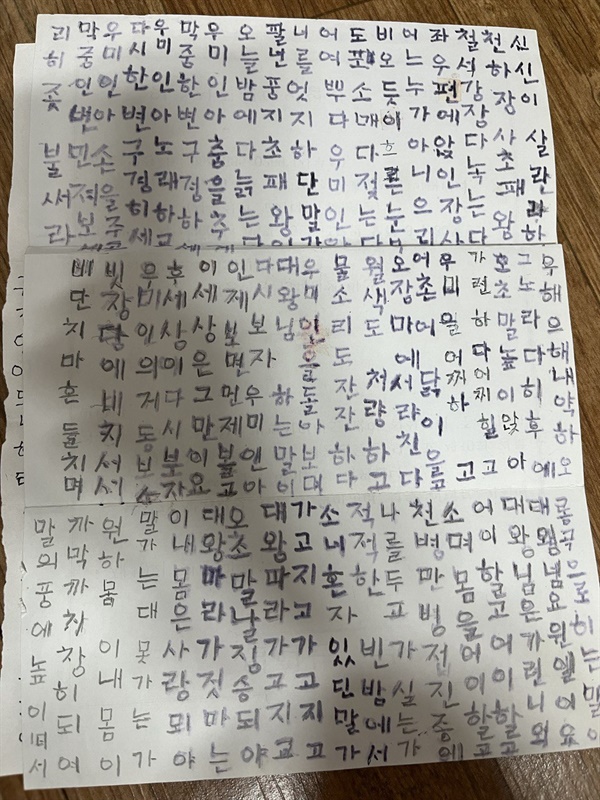 신신이 살란
천하장사 초패왕
철석강장 다 녹는다
좌우편에 앉인 장사
어느 누가 아니 으리
비오듯이 흐른 눈
도포소매 다 젖는다
어여뿌다 우미인
니를 엇지 하단 말
팔년풍지 초패왕
오늘밤에 다 늙는
우미인아 춤을 추
막중한 변 구경하
우미인아 노래하
다시 한변 구경히세
우미인아 손을 주
막중인변 민져보
리히 촛불 써라
우해으해 내약하오
그노라 다히후에
호초말 높이 앉아
가련하다 어째 힐고
우미을 어찌하
어촌에 닭이 을고
오장마에서라 친다
월색도 처량하고
물소리도 잔잔하다
우미인을 돌아보이
대왕님 하는 말
다시 보자 우미인아
인제 보면 언제 볼고
이세상은 그만이요
후세상의 다시 보자
우미인의 거동보소
빗창당에 비치서서
비단치마 흔들치며
롱곡을
대왕념요
대왕님은
어이할고 어이할고
소며몸을 어이할고
천병만병 전진중에
나를 두고 가실는가
적적한 빈밤에서
소네혼자 있단 말가
가고지고 가고지고
대왕따라 가고지고
오초말 날짐승되야
대왕마라 가것마는
이내몸은 사랑뫼야
말가는대 못가는
원하몸 이내몸이
까막까치 창히되여
말의풍에 높이떠서